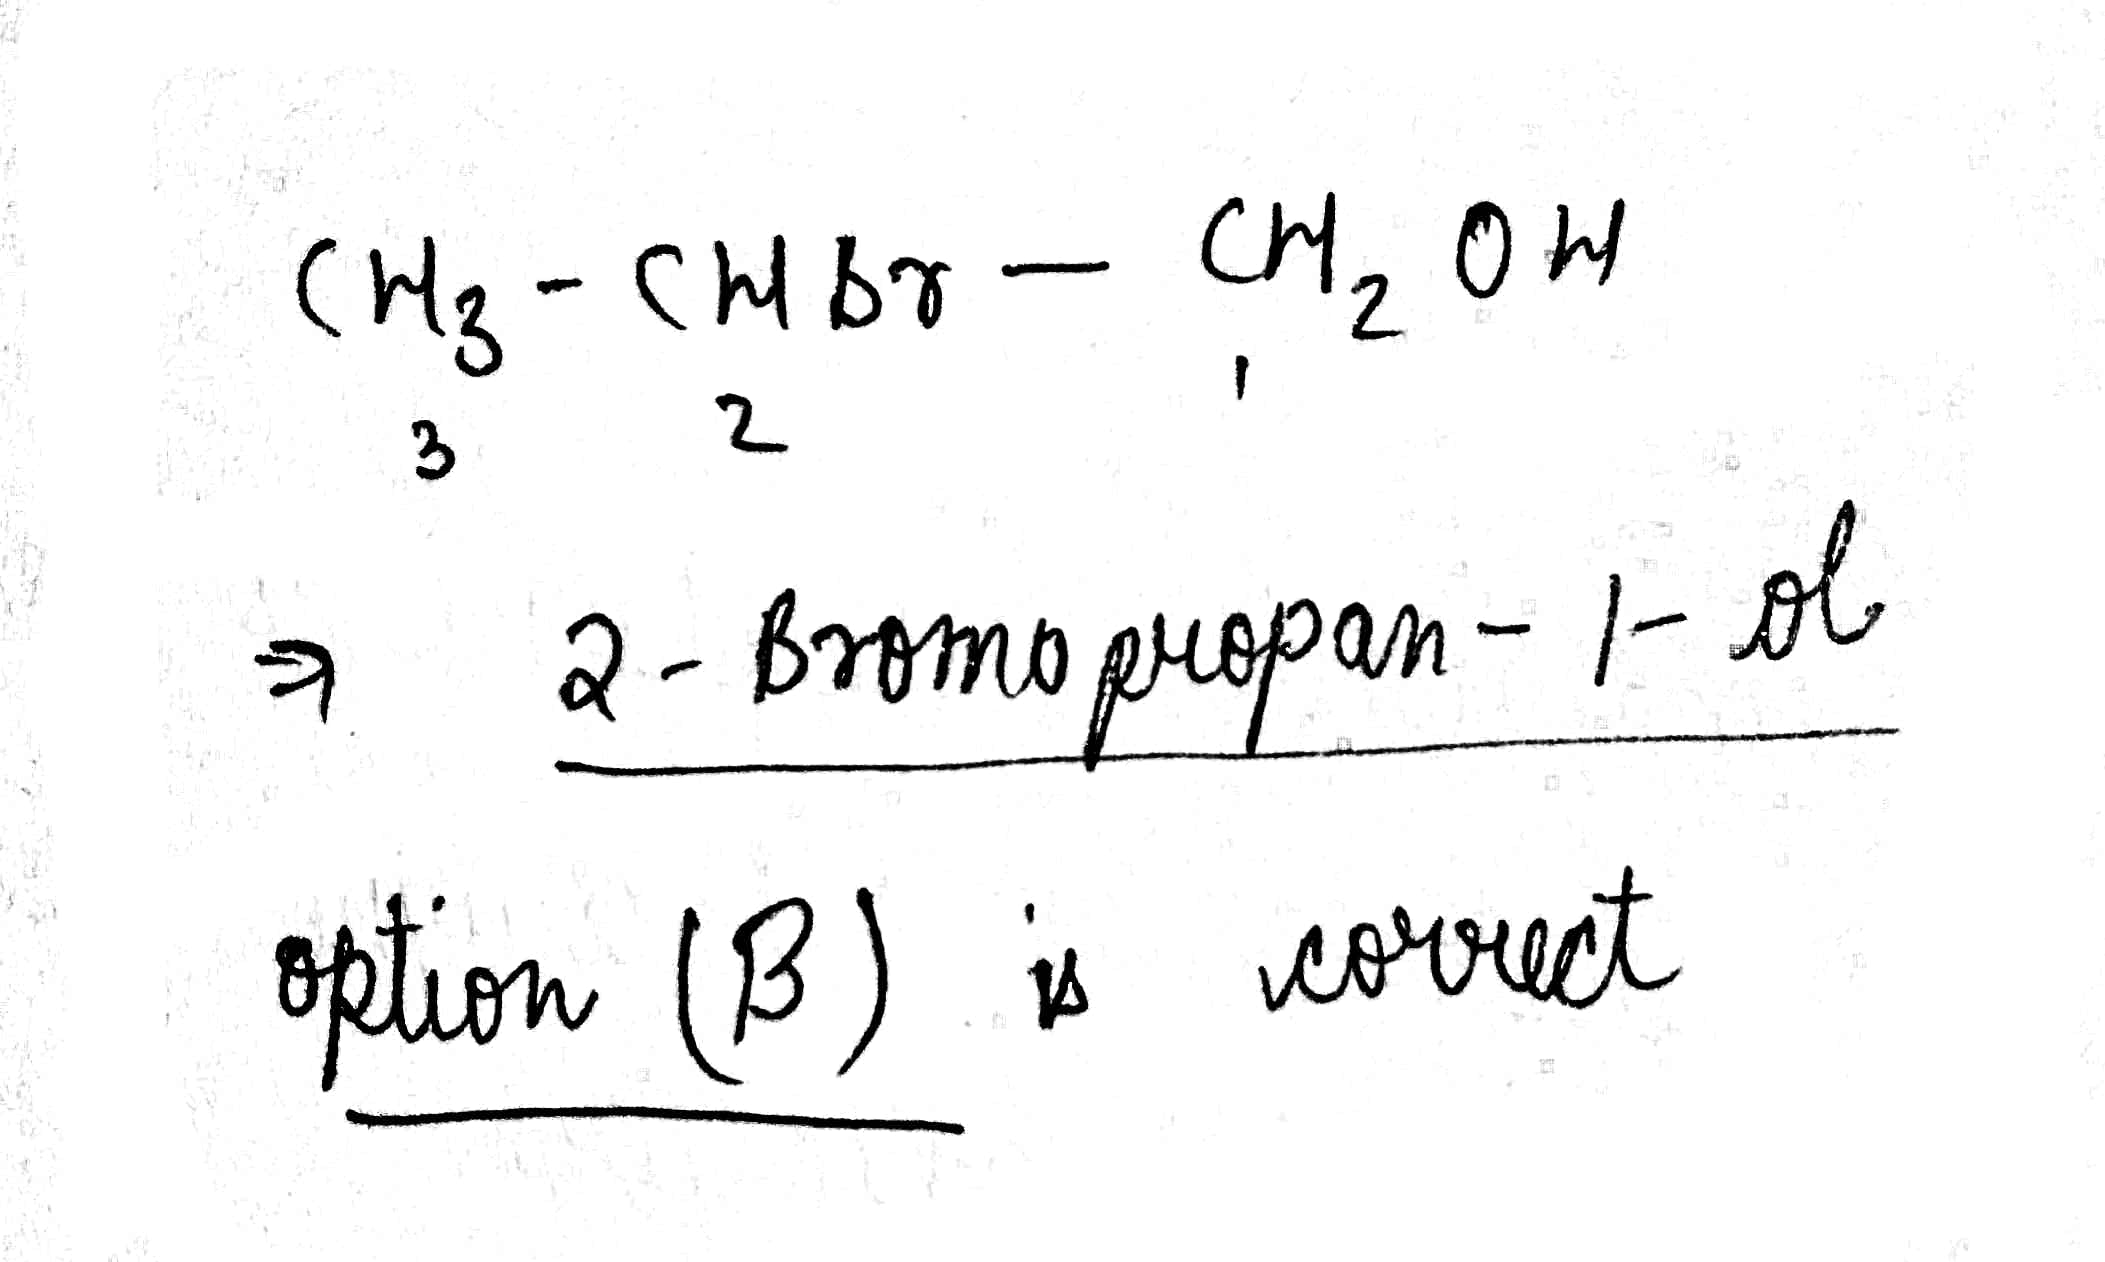 CH₃ - CHBr — CH₂OH
3 2 1
⇒ 2 - Bromopropan - 1 - ol
option (B) is correct